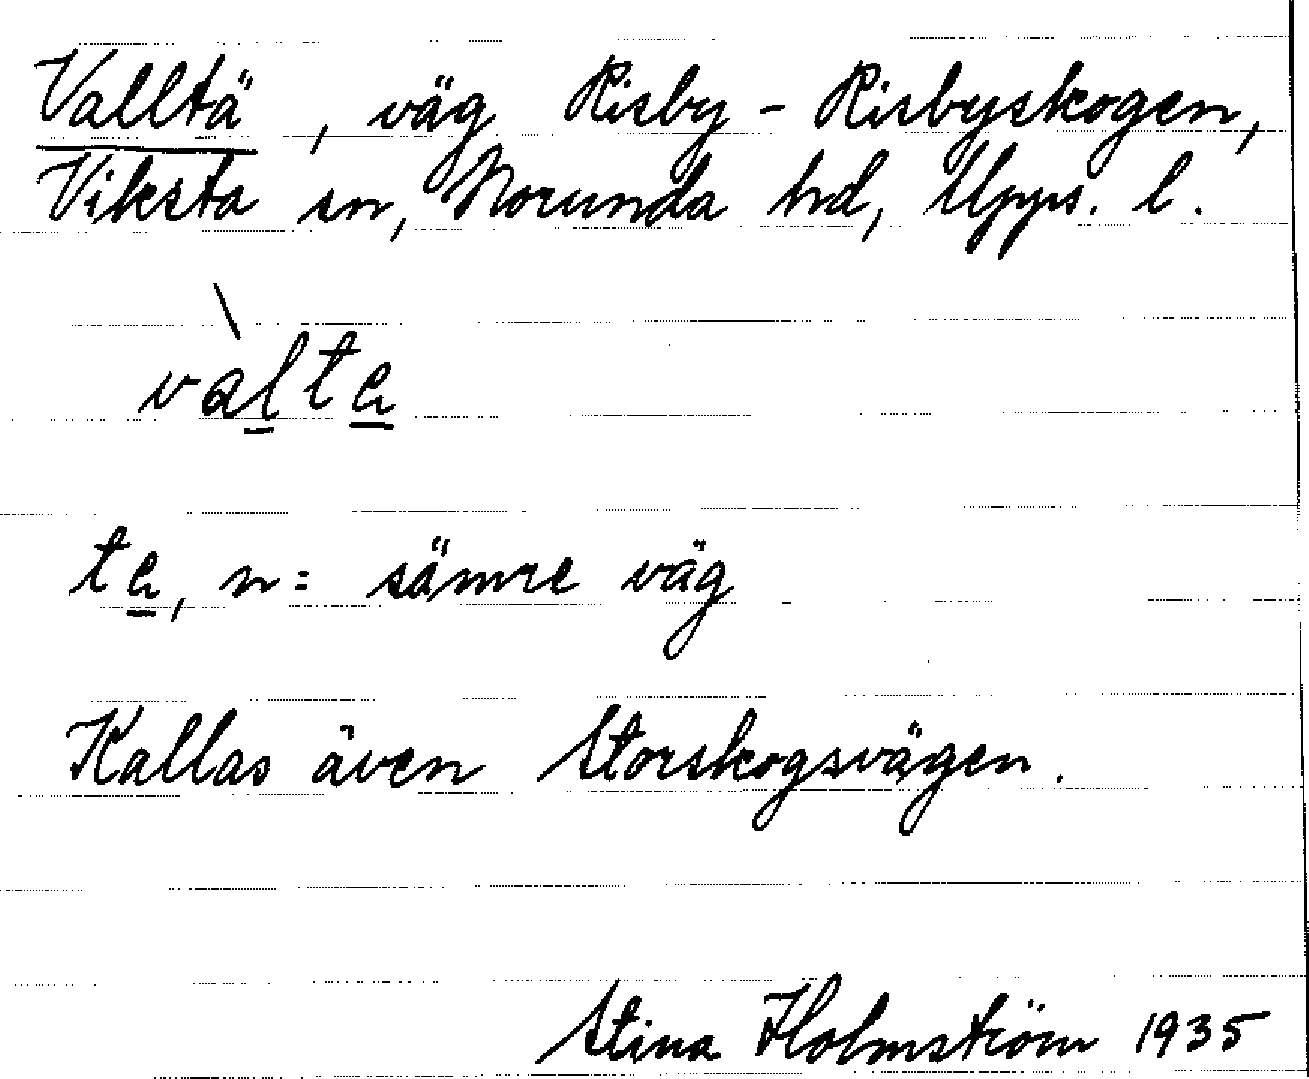 Valltä, väg Risby - Risbyskogen,
Viksta sn, Norunda hd, Upps. l.
vàltä
tä, n = sämre väg
Kallas även Storskogsvägen.
Stina Holmström 1935